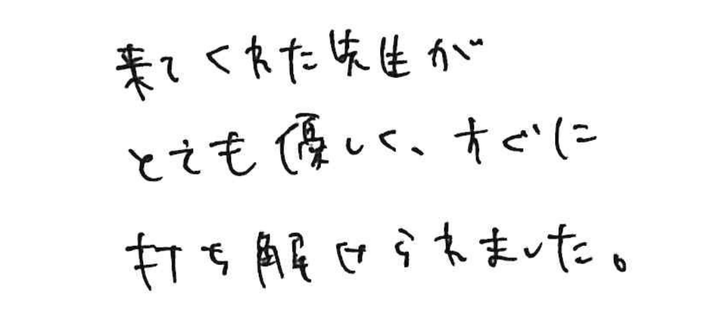 来てくれた先生が
とても優しく、すぐに
打ち解けられました。